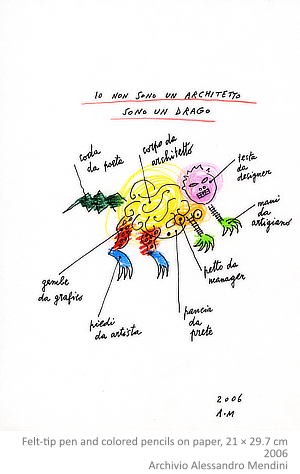 IO NON SONO UN ARCHITETTO
SONO UN DRAGO
coda
da poeta
corpo da
architetto
testa
da
designer
mani
da
artigiano
petto da
manager
pancia
da
prete
piedi
da artista
gambe
da grafico
2006
A.M
Felt-tip pen and colored pencils on paper, 21 × 29.7 cm
2006
Archivio Alessandro Mendini